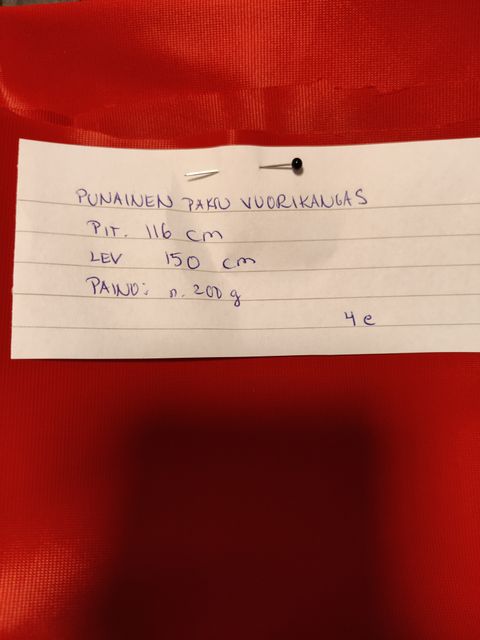 PUNAINEN PAKSU VUORIKANGAS
PIT. 116 cm
LEV 150 cm
PAINO: n. 200 g
4 e